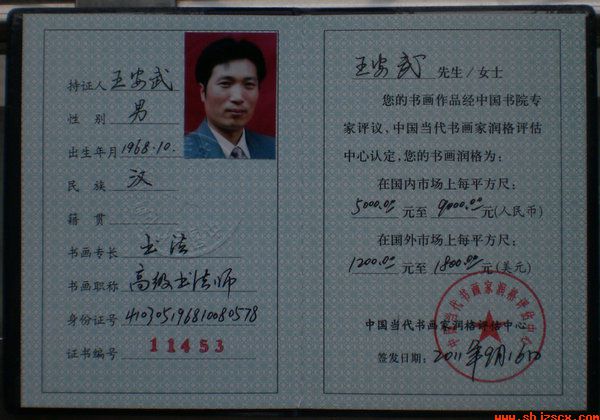 持证人 王安武
性别 男
出生年月 1968.10.
民族 汉
籍贯
书画专长 书法
书画职称 高级书法师
身份证号 410305196810080578
证书编号 11453
王安武 先生/女士
您的书画作品经中国书院专
家评议，中国当代书画家润格评估
中心认定，您的书画润格为：
在国内市场上每平方尺：
5000.00 元至 9000.00 元(人民币)
在国外市场上每平方尺：
1200.00 元至 1800.00 元(美元)
中国当代书画家润格评估中心
签发日期： 2011年9月16日
中国当代书画家润格评估中心
www.shjzscx.com